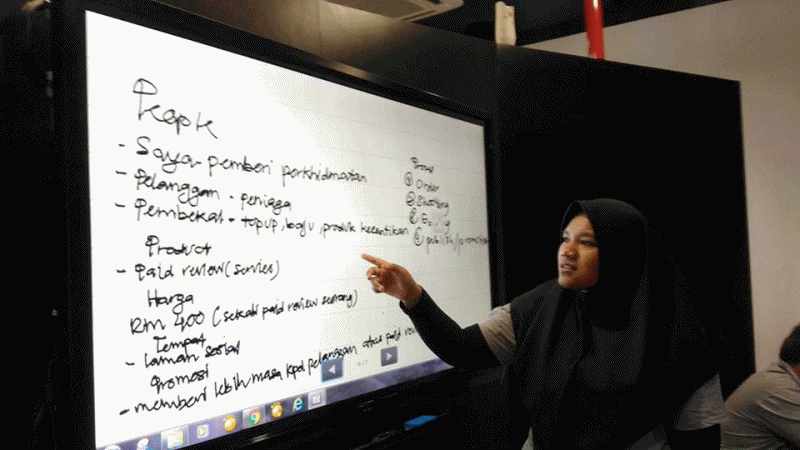 People
- Saya pemberi perkhidmatan
- Pelanggan - peniaga
- Pembekal - topup, baju, produk kecantikan
Product
- Paid review (servies)
Harga
RM 400 (sekali paid review seorang)
Tempat
- laman sosial
Promosi
- memberi lebih masa kpd pelanggan atas paid
① Order
② Shooting
④ publish/promotion